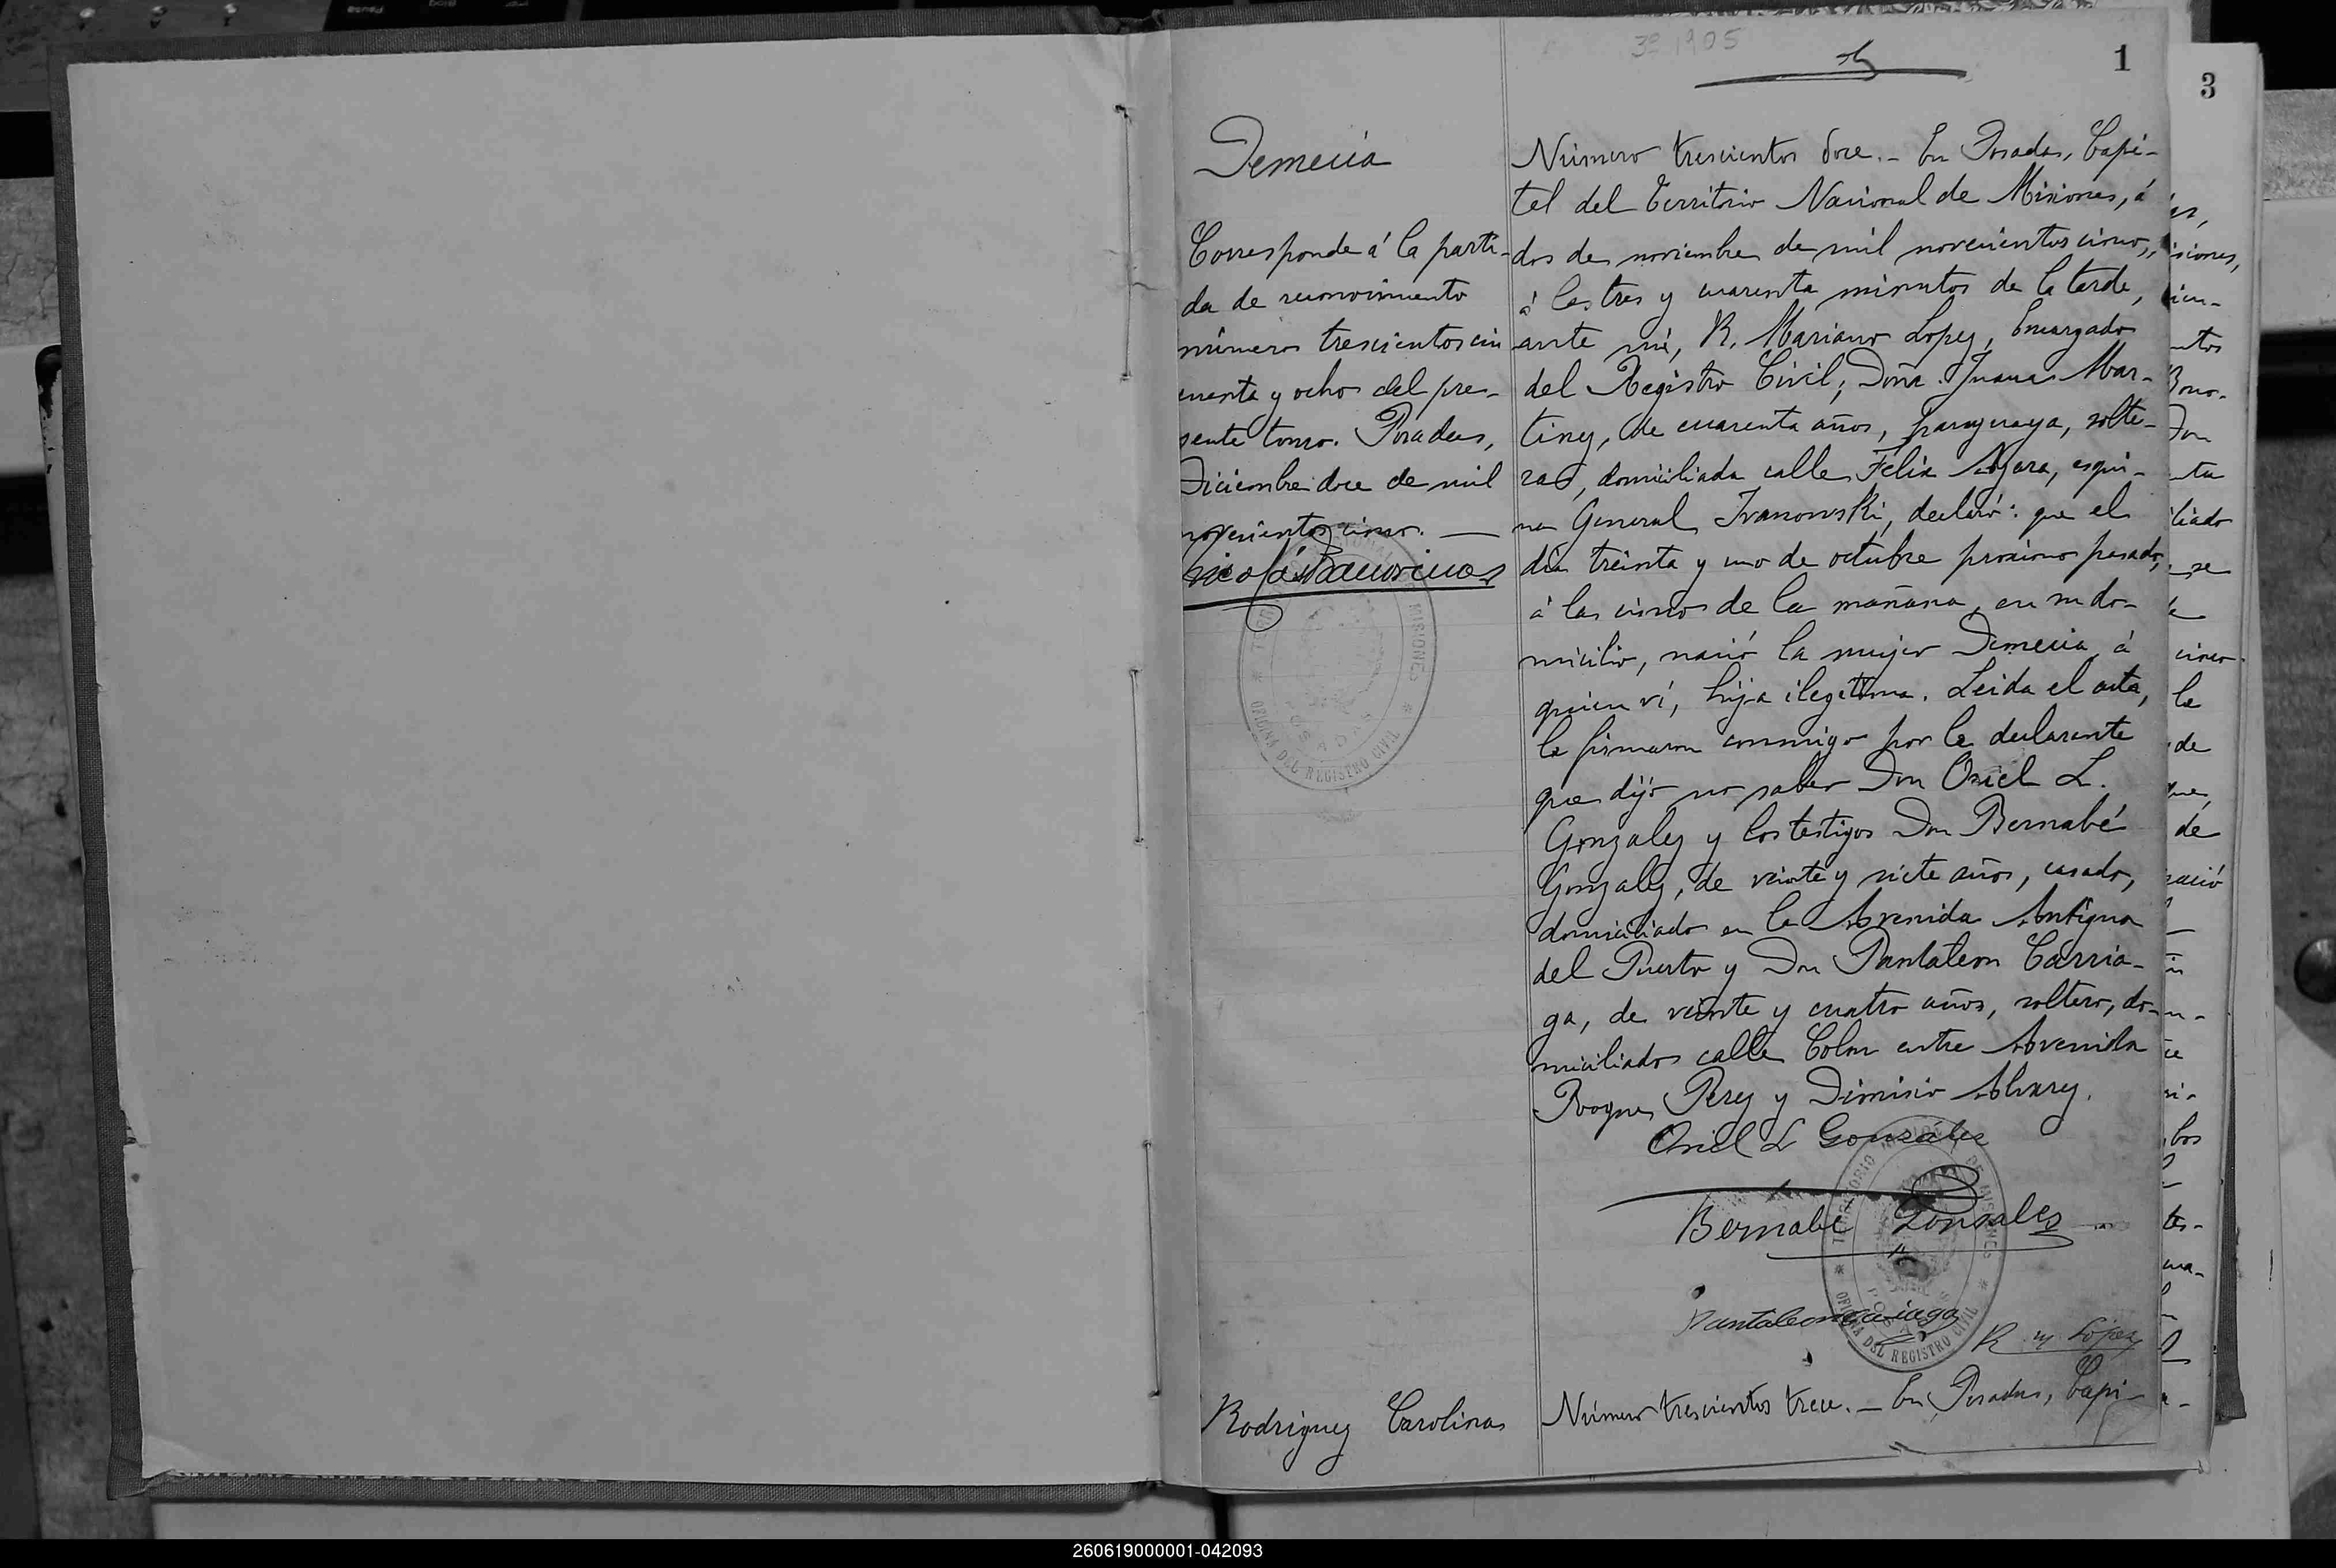 3º 1905
1
3
Demecia
Corresponde á la parti-
da de reconocimiento
número trescientos cin
cuenta y ocho del pre-
sente tomo. Posadas,
Diciembre doce de mil
novecientos cinco. —
TERRITORIO NACIONAL DE MISIONES
POSADAS
OFICINA DEL REGISTRO CIVIL
Número trescientos doce. - En Posadas, Capi-
tal del Territorio Nacional de Misiones, á
dos de noviembre de mil novecientos cinco,
á las tres y cuarenta minutos de la tarde,
ante mí, R. Mariano Lopez, Encargado
del Registro Civil; Doña Juana Mar-
tinez, de cuarenta años, paraguaya, solte-
ra, domiciliada calle Félix Azara, esqui-
na General Ivanowski, declaró: que el
día treinta y uno de octubre próximo pasado,
á las cinco de la mañana, en su do-
micilio, nació la mujer Demecia, á
quien ví, hija ilegítima. Leida el acta,
la firmaron conmigo por la declarante
que dijo no saber Don Oriel L.
Gonzalez y los testigos Don Bernabé
Gonzalez, de veinte y siete años, casado,
domiciliado en la Avenida Antigua
del Puerto y Don Pantaleon Carria-
ga, de veinte y cuatro años, soltero, do-
miciliado calle Colon entre Avenida
Roque Perez y Dionisio Alvarez.
Oriel L Gonzalez
Bernabe Gonzales
Pantaleon
R M Lopez
TERRITORIO NACIONAL DE MISIONES
POSADAS
OFICINA DEL REGISTRO CIVIL
Rodriguez Carolina
Número trescientos trece. - En Posadas, Capi-
260619000001-042093